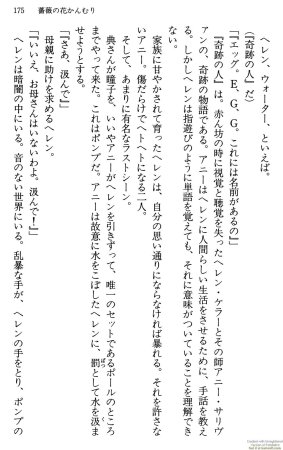 175 薔薇の花かんむり
ヘレン、ウォーター、といえば。
(『奇跡の人』だ)
『エッグ。E、G、G。これには名前があるの』
『奇跡の人』は、赤ん坊の時に視覚と聴覚を失ったヘレン・ケラーとその師アニー・サリヴ
ァンの、奇跡の物語である。アニーはヘレンに人間らしい生活をさせるために、手話を教え
る。しかしヘレンは指遊びのように単語を覚えても、それに意味がついていることを理解でき
ない。
家族に甘やかされて育ったヘレンは、自分の思い通りにならなければ暴れる。それを許さな
いアニー。傷だらけでヘトヘトになる二人。
そして、あまりに有名なラストシーン。
典さんが瞳子を、いいやアニーがヘレンを引きずって、唯一のセットであるポールのところ
までやって来た。これはポンプだ。アニーは故意に水をこぼしたヘレンに、罰として水を汲ま
せようとする。
『さあ、汲んで』
母親に助けを求めるヘレン。
『いいえ、お母さんはいないわよ。汲んで!』
ヘレンは暗闇の中にいる。音のない世界にいる。乱暴な手が、ヘレンの手をとり、ポンプの